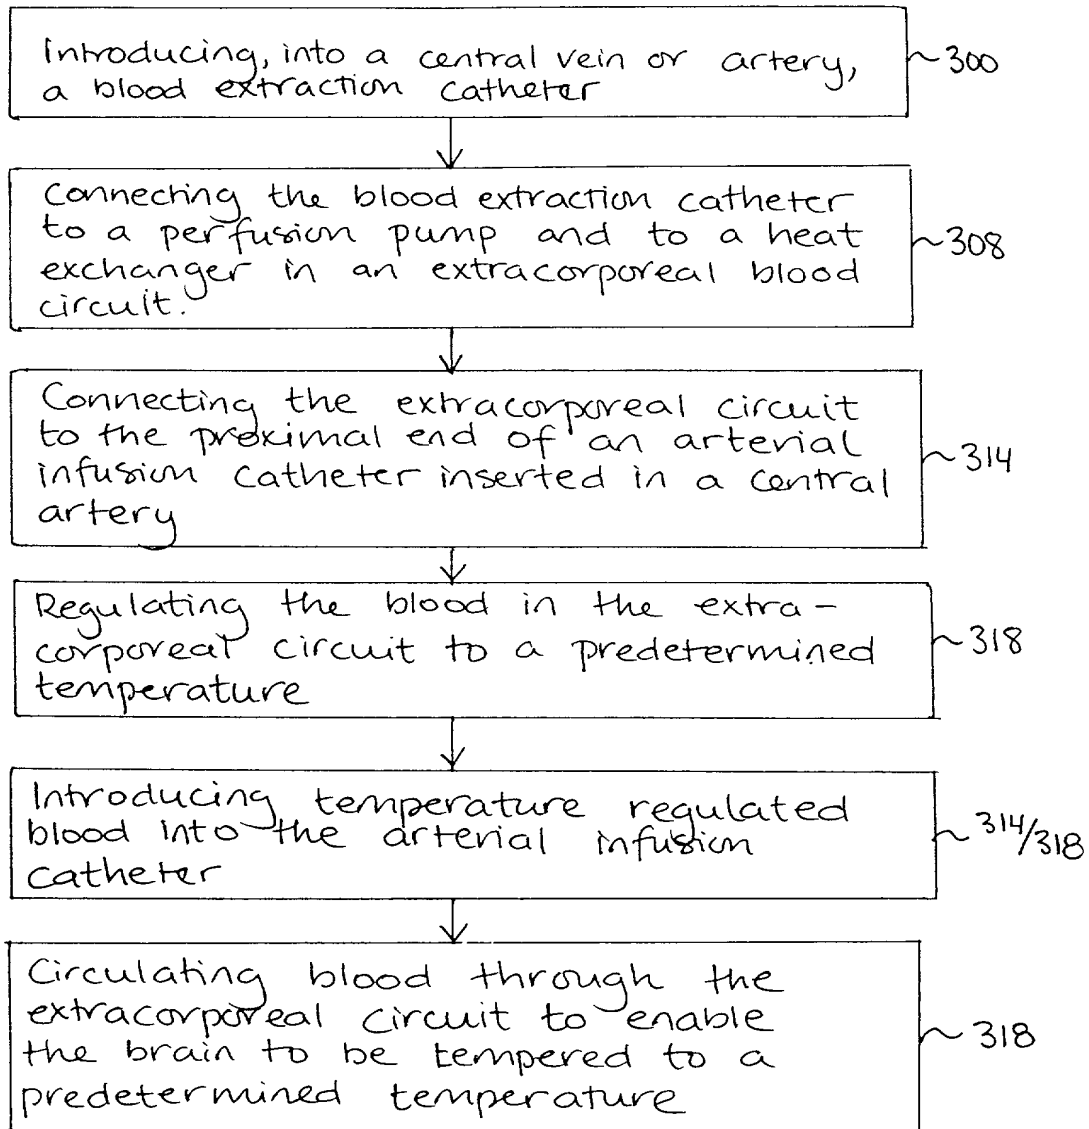 Introducing, into a central vein or artery,
a blood extraction catheter
300
Connecting the blood extraction catheter
to a perfusion pump and to a heat
exchanger in an extracorporeal blood
circuit.
308
Connecting the extracorporeal circuit
to the proximal end of an arterial
infusion catheter inserted in a central
artery
314
Regulating the blood in the extra-
corporeal circuit to a predetermined
temperature
318
Introducing temperature regulated
blood into the arterial infusion
catheter
314/318
Circulating blood through the
extracorporeal circuit to enable
the brain to be tempered to a
predetermined temperature
318